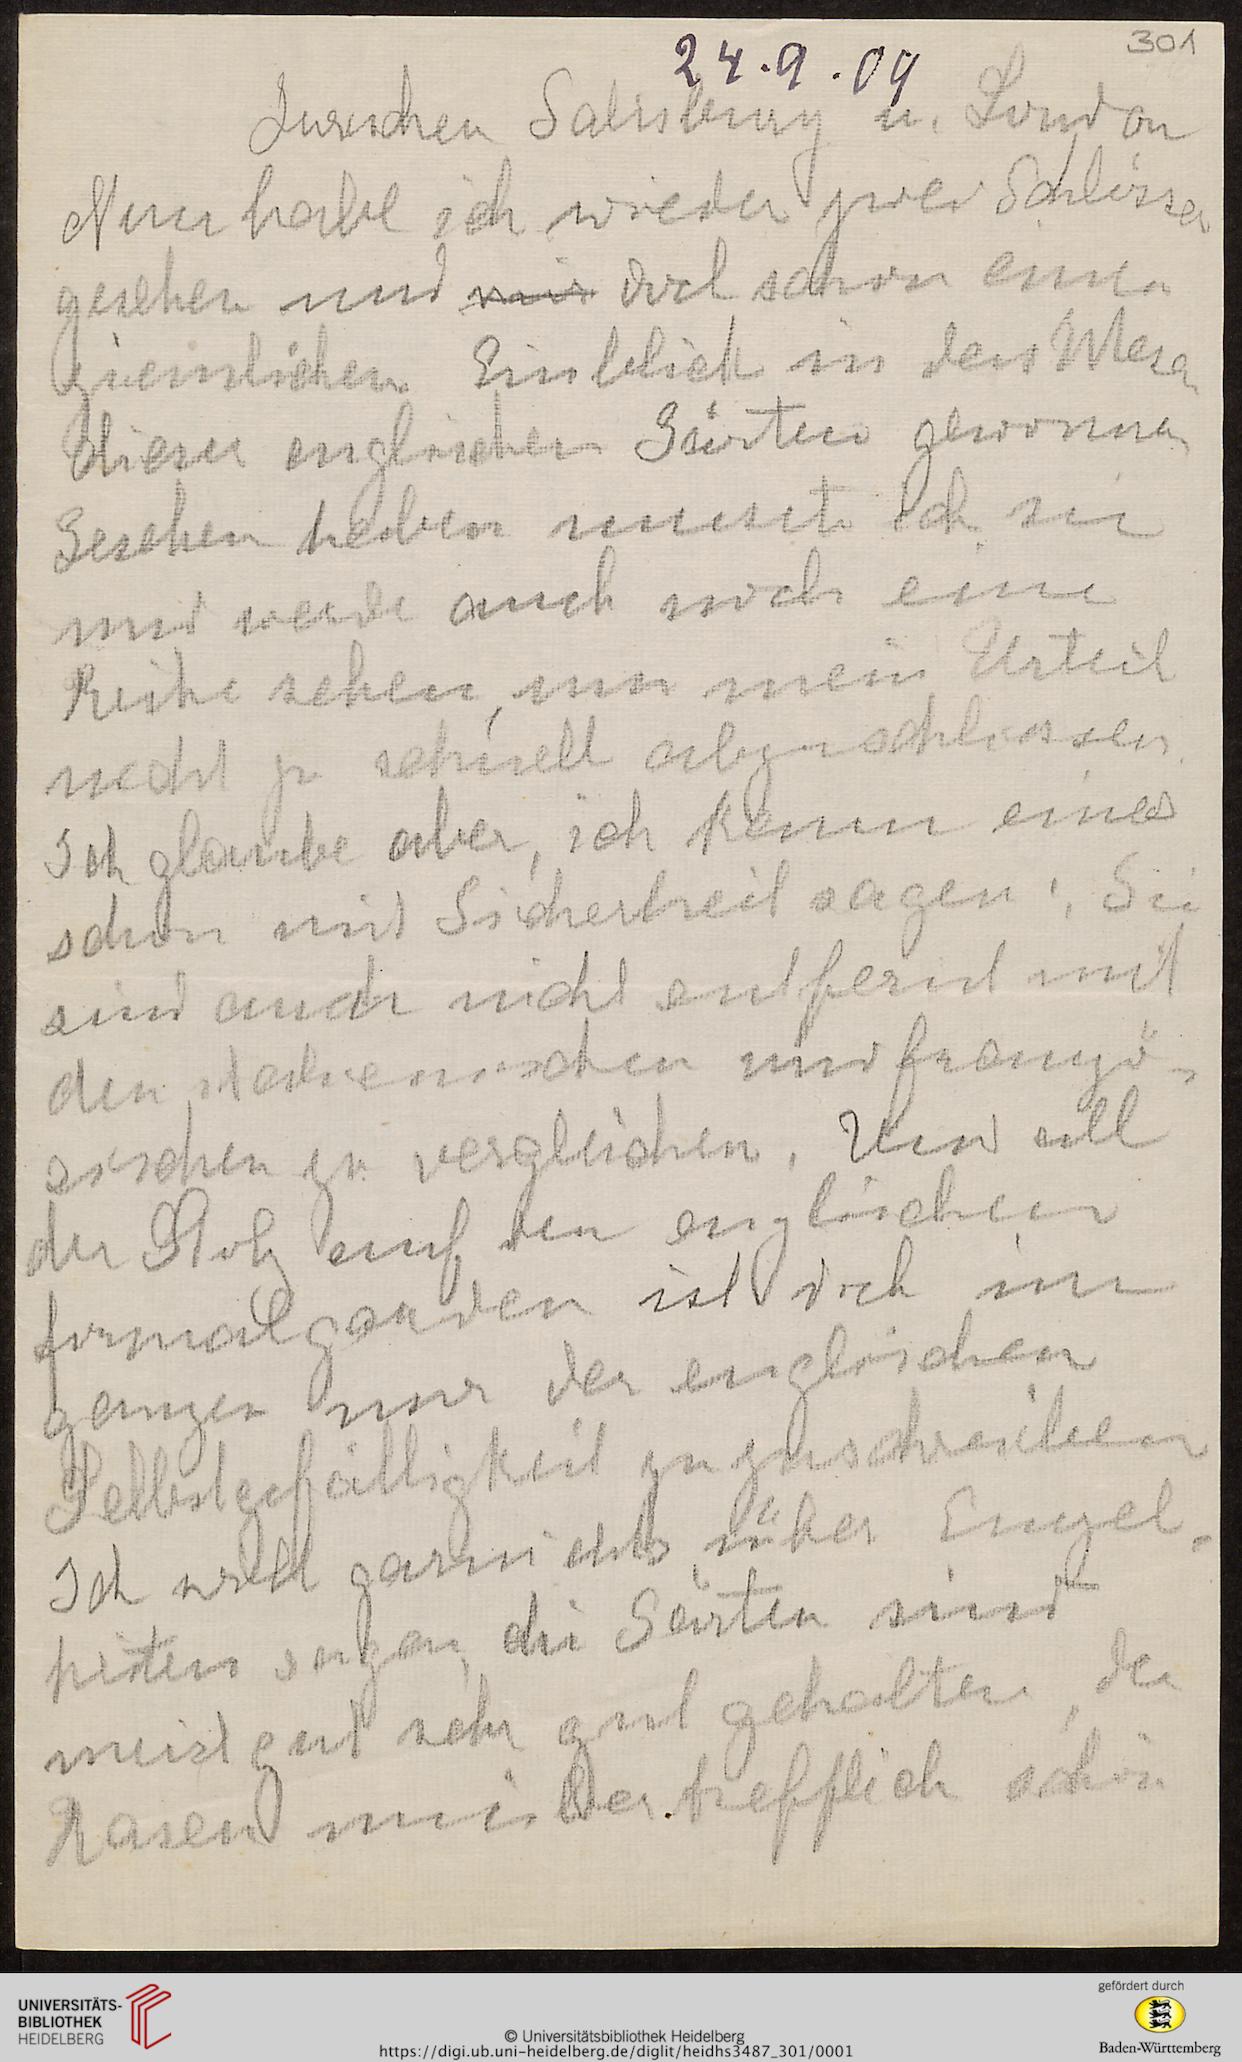 301
24.9.09
Zwischen Salisbury u. London
Nun habe ich wieder zwei Schlösser
gesehen und mir doch schon einen
ziemlichen Einblick in das Wesen
dieser englischen Gärten gewonnen
Gesehen haben musste ich sie
und werde auch noch eine
Reihe sehen, um mein Urteil
nicht zu schnell abzuschliessen
Ich glaube aber, ich kann eines
schon mit Sicherheit sagen: Sie
sind auch nicht entfernt mit
den italienischen und franzö-
sischen zu vergleichen. Und all
der Stolz auf den englischen
formalgarden ist doch im
ganzen nur der englischen
Selbstgefälligkeit zuzuschreiben
Ich will garnichts über Einzel-
heiten sagen, die Gärten sind
meist gut sehr gut gehalten, der
Rasen unübertrefflich schön
UNIVERSITÄTS-
BIBLIOTHEK
HEIDELBERG
© Universitätsbibliothek Heidelberg
https://digi.ub.uni-heidelberg.de/diglit/heidhs3487_301/0001
gefördert durch
Baden-Württemberg